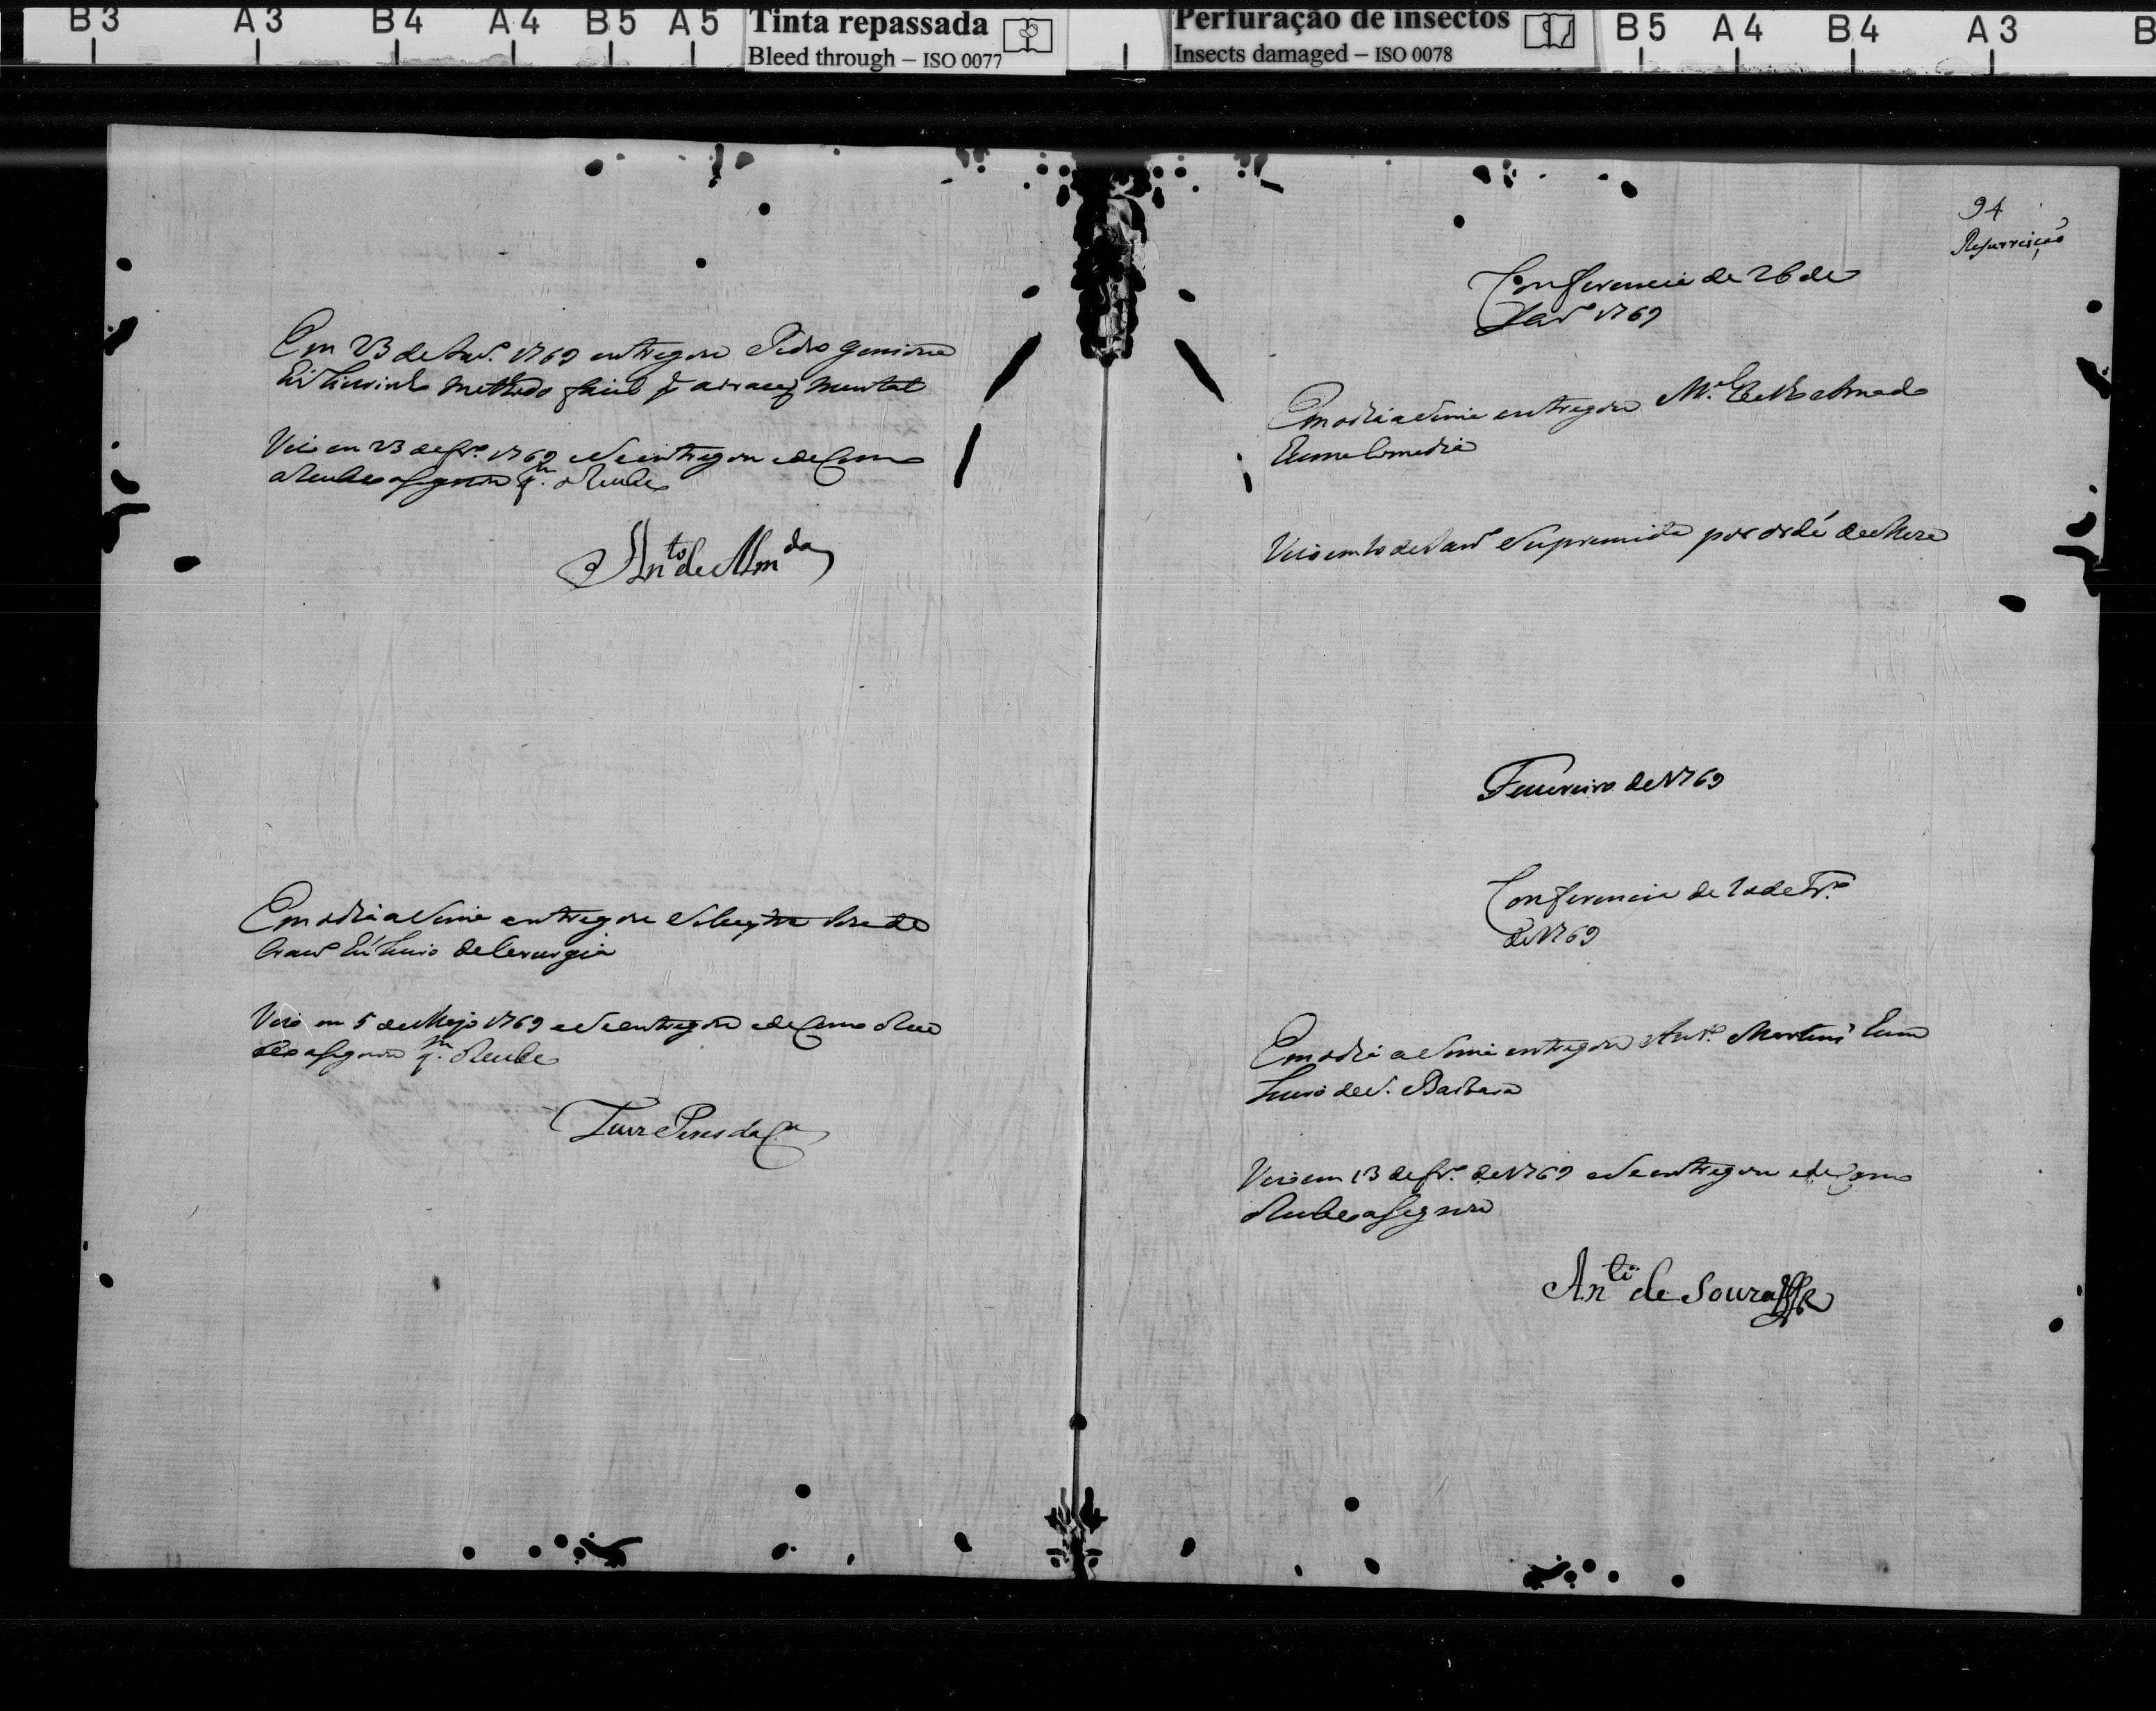 B3 A3 B4 A4 B5 A5
Tinta repassada
Bleed through – ISO 0077
Perfuração de insectos
Insects damaged – ISO 0078
B5 A4 B4 A3 B
Em 23 de Janº. 1769 entregou Pedro
Livrinho Methodo facil
Veio em 23 de frº. 1769 e se entregou e de Como
o Recebeo asignou qm. o Recebeo
Anto de Almda
Em o dia asima entregou
hu Livro de Cerurgia
Veio em 5 de Mayo 1769 e se entregou e de Como o Rece
beo asignou qm. o Recebeo
Luiz Pires da Cª
94
Resurreição
Conferencia de 26 de
Janº 1769
Em o dia asima entregou Mel
huma Comedia
Veio em 10 de Janº e Supremida por ordé da Meza
Feuereiro de 1769
Conferencia de de Frº
de 1769
Em o dia asima entregou Antº. Martins hum
Livro de S. Barbara
Veio em 13 de frº. de 1769 e se entregou e de Como
o Recebeo asignou
Anto de Souza